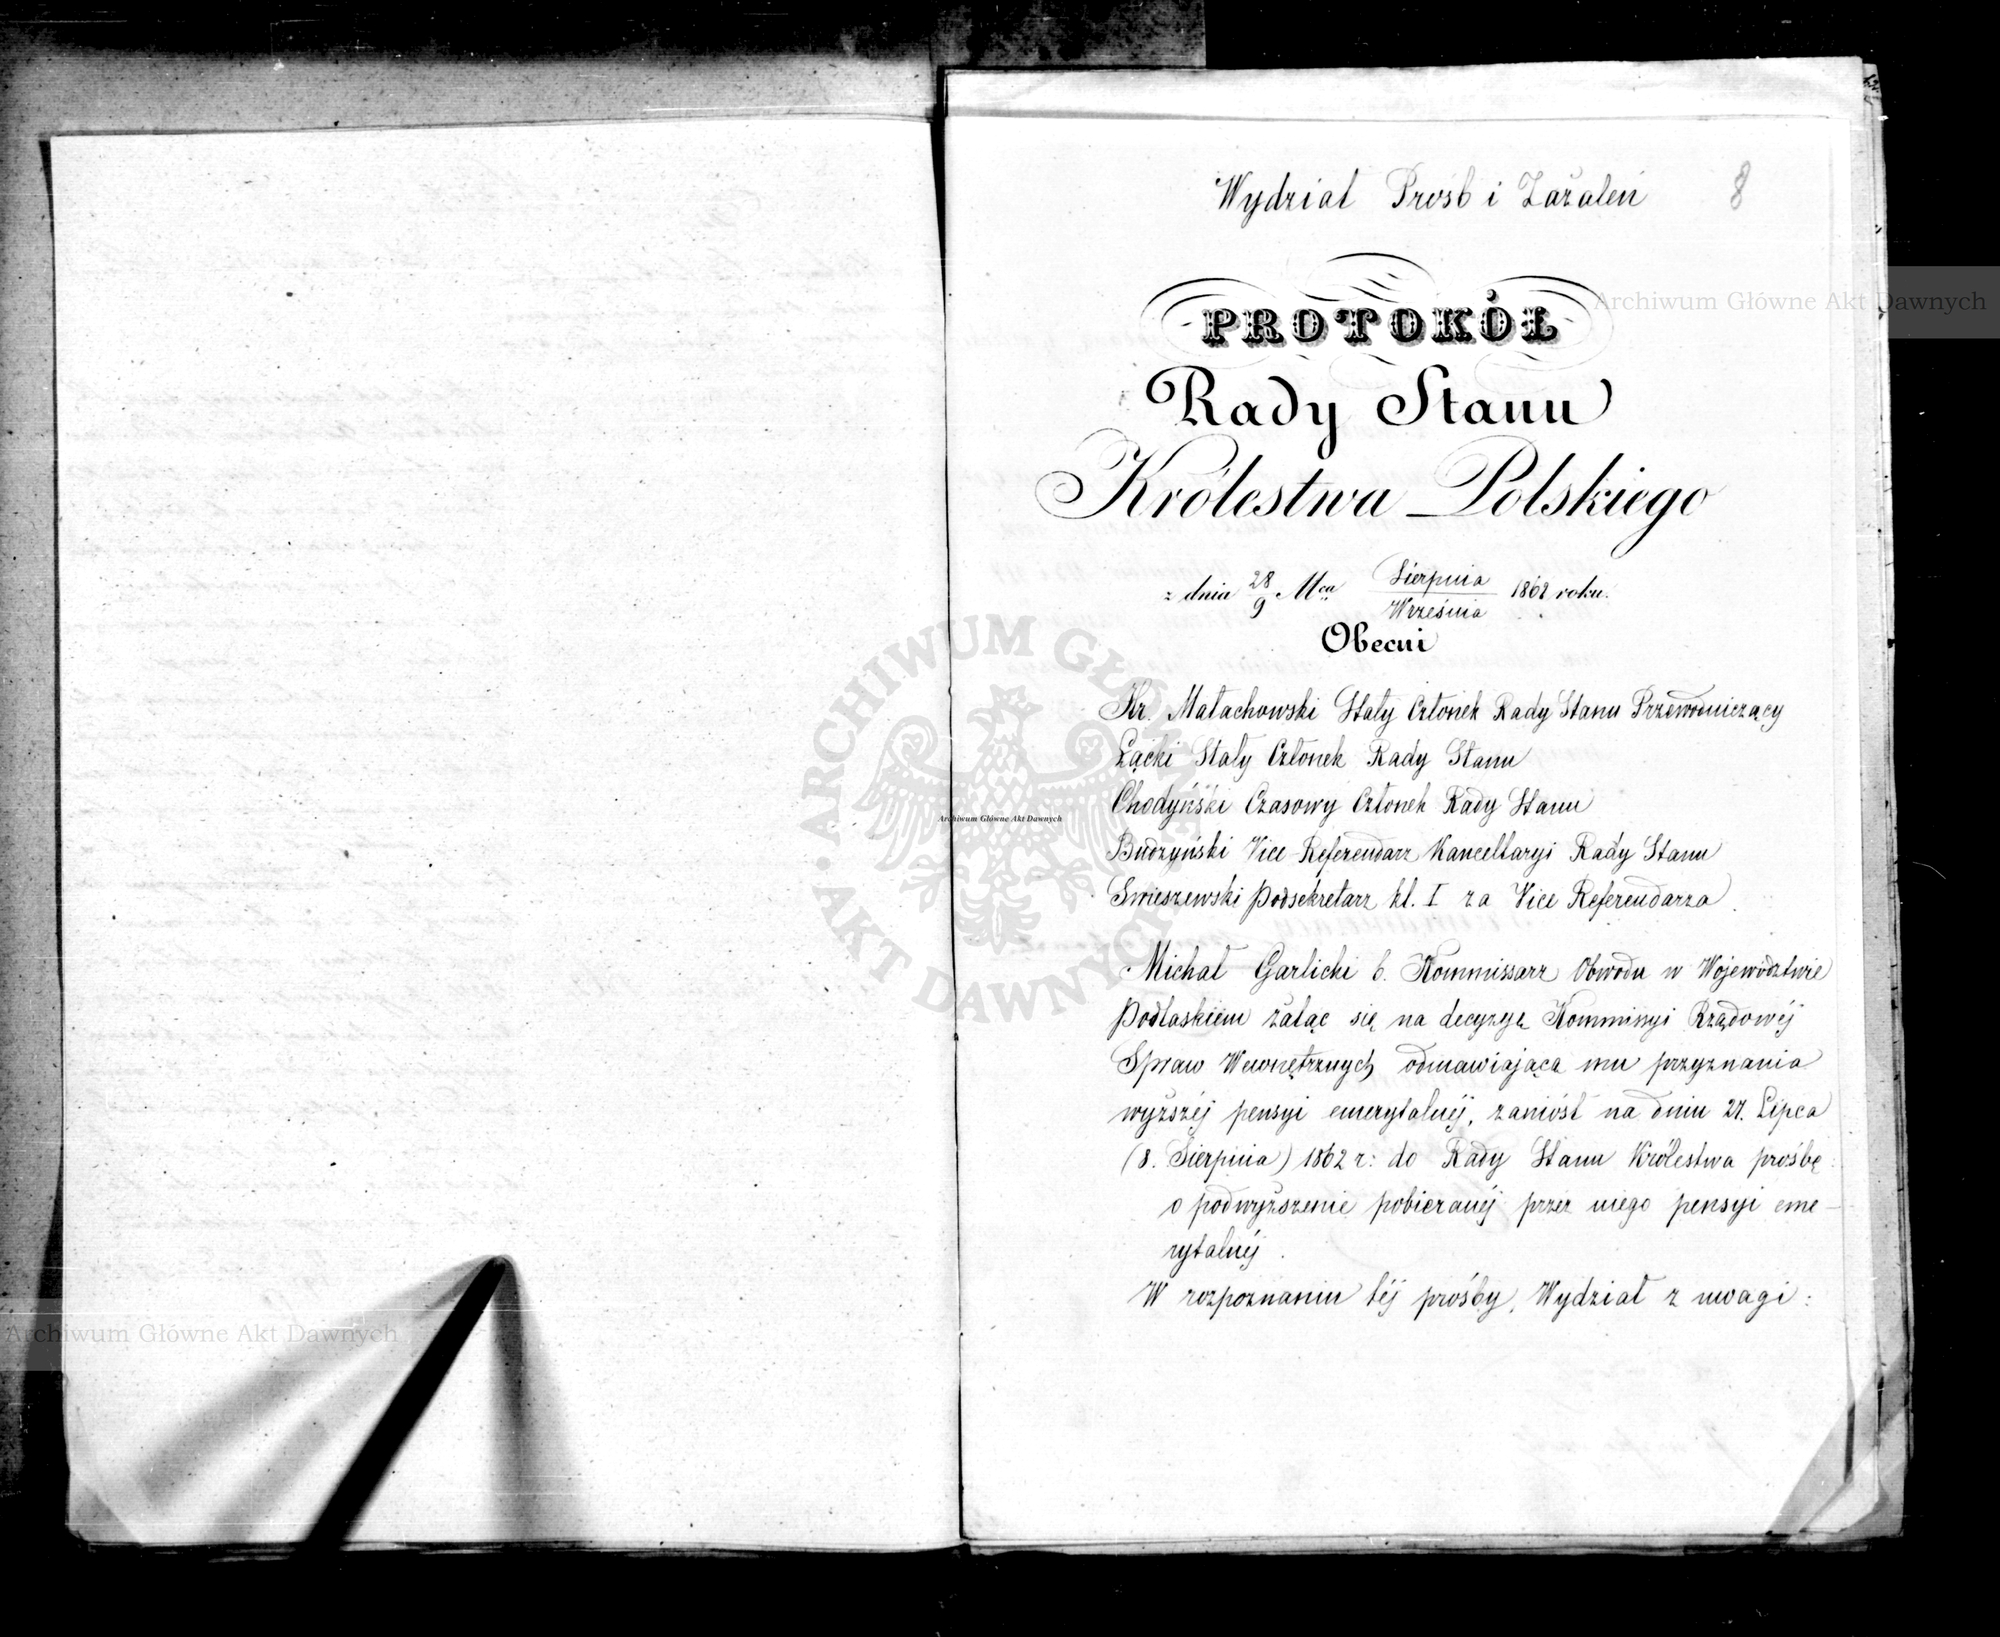 Wydział Prośb i Zażaleń
8
PROTOKÓŁ
Rady Stanu
Królestwa Polskiego
z dnia 28/9 Mca Sierpnia/Września 1862 roku.
Obecni
Hr. Małachowski Stały Członek Rady Stanu Przewodniczący
Łącki Stały Członek Rady Stanu
Chodyński Czasowy Członek Rady Stanu
Budzyński Vice-Referendarz Kancellaryi Rady Stanu
Smieszewski Podsekretarz kl. I za Vice Referendarza
Michał Garlicki b. Kommissarz Obwodu w Województwie
Podlaskiem żaląc się na decyzyę Kommissyi Rządowéj
Spraw Wewnętrznych odmawiającą mu przyznania
wyższéj pensyi emerytalnéj, zaniósł na dniu 27. Lipca
(8. Sierpnia) 1862 r: do Rady Stanu Królestwa prośbę:
o podwyższenie pobieranéj przez niego pensyi eme-
rytalnéj.
W rozpoznaniu téj prośby, Wydział z uwagi:
Archiwum Główne Akt Dawnych
Archiwum Główne Akt Dawnych
Archiwum Główne Akt Dawnych
ARCHIWUM GŁÓWNE AKT DAWNYCH